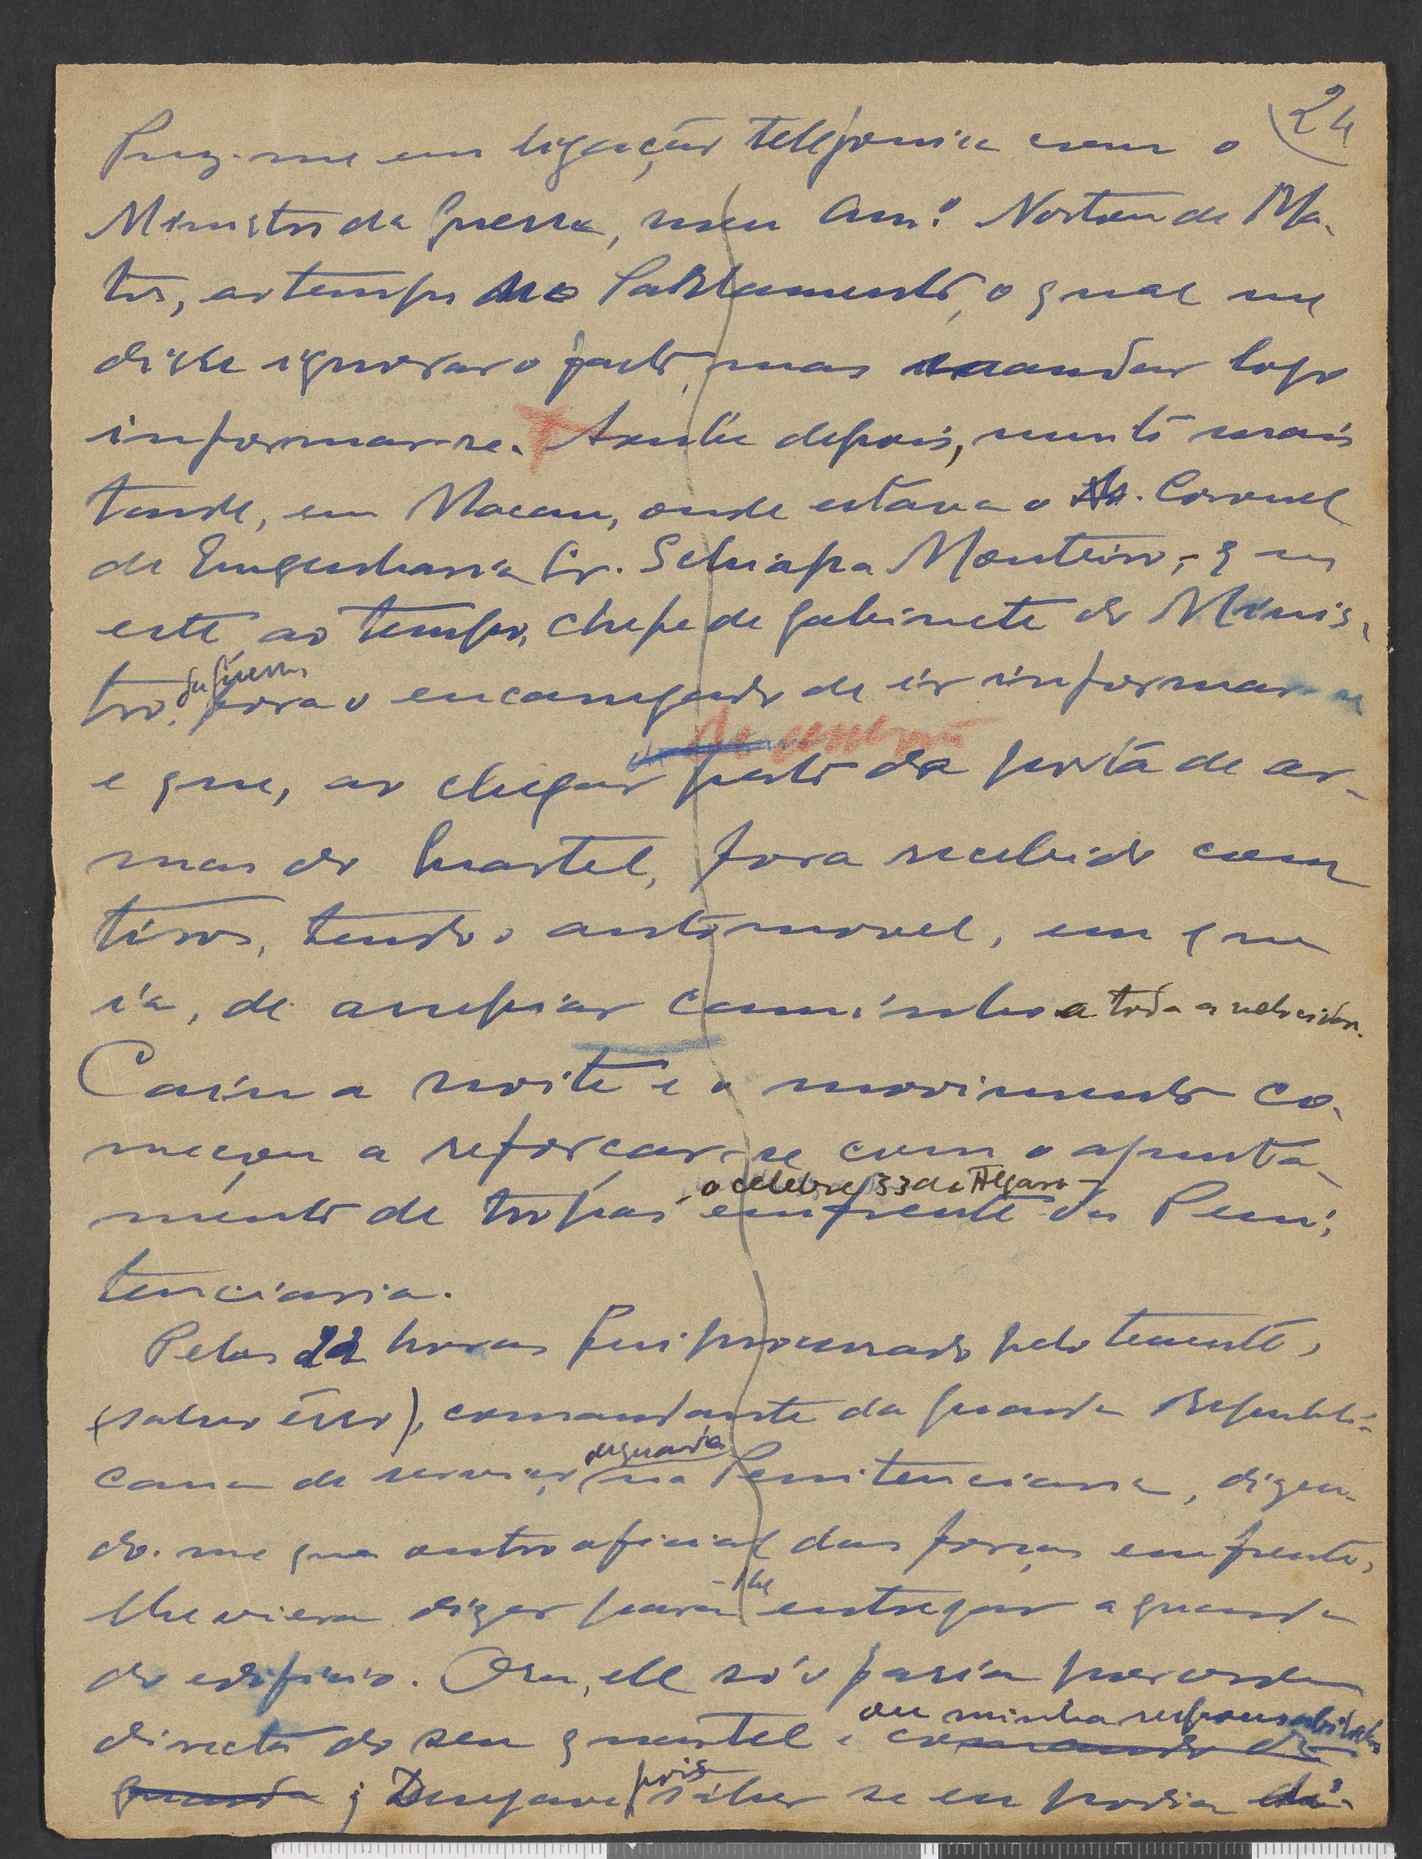 24
Puz-me em ligação telefonica com o
Ministro da Guerra, meu Am.º Norton de Ma-
tos, ao tempo no Parlamento, o qual me
disse ignorar o facto, mas mandar logo
informar-se. Soube depois, muito mais
tarde, em Macau, onde estava o Coronel
de Engenharia Sr. Schiapa Monteiro, q era
este, ao tempo, chefe de gabinete do Minis-
tro, da Guerra fora o encarregado de ir informar-se
e que, ao chegar perto da porta de ar-
mas do Quartel, fora recebido com
tiros, tendo o automovel, em que
ia, de arrepiar caminho a toda a velocidade.
Caíu a noite e o movimento co-
meçou a reforçar-se com o aponta-
mento de tropas o celebre 33 do Algarve
em frente da Peni-
tenciaria.
Pelas 22 horas fui procurado pelo tenente,
(salvo êrro), comandante da guarda Republi-
cana de serviço, de guarda na Penitenciaria, dizen-
do-me que outro oficial das forças em frente,
lhe viera dizer para -lhe entregar a guarda
do edificio. Ora, ele só o faria por ordem
directa do seu quartel e ou minha responsabilidade
comando da
guarda; Desejava pois saber se eu podia